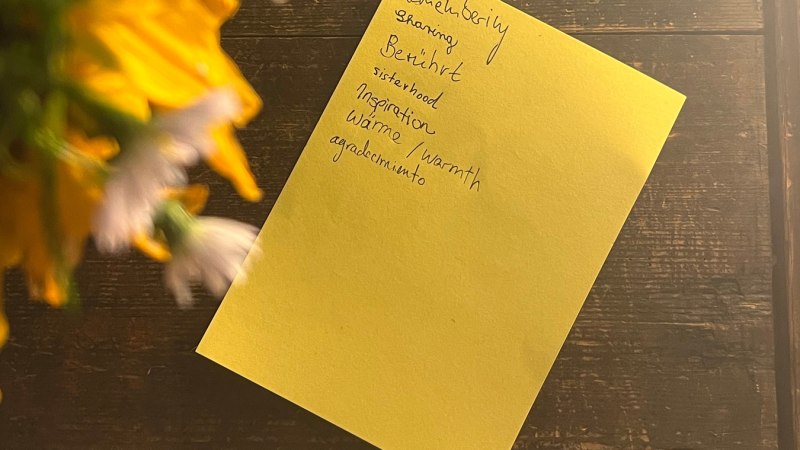 sharing
Berührt
sisterhood
Inspiration
Wärme / warmth
agradecimiento